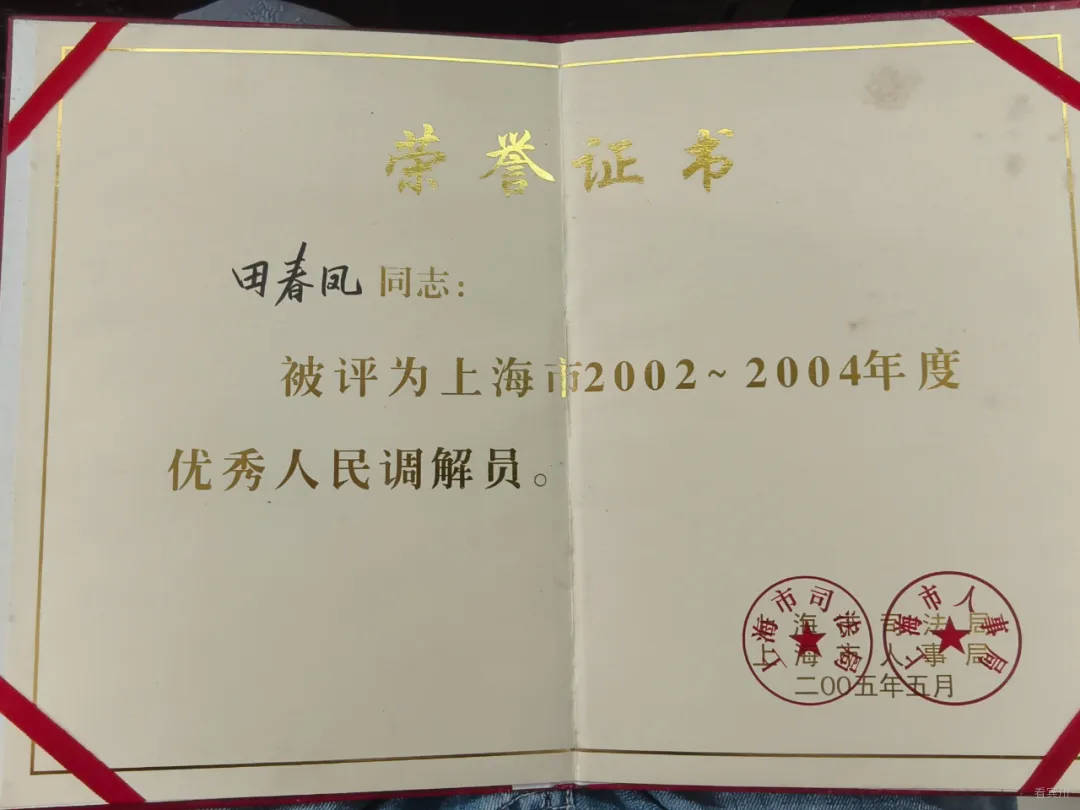 荣誉证书
田春凤 同志：
被评为上海市2002~2004年度
优秀人民调解员。
上海市司法局
上海市人事局
二00五年五月
上海市司法局
上海市人事局